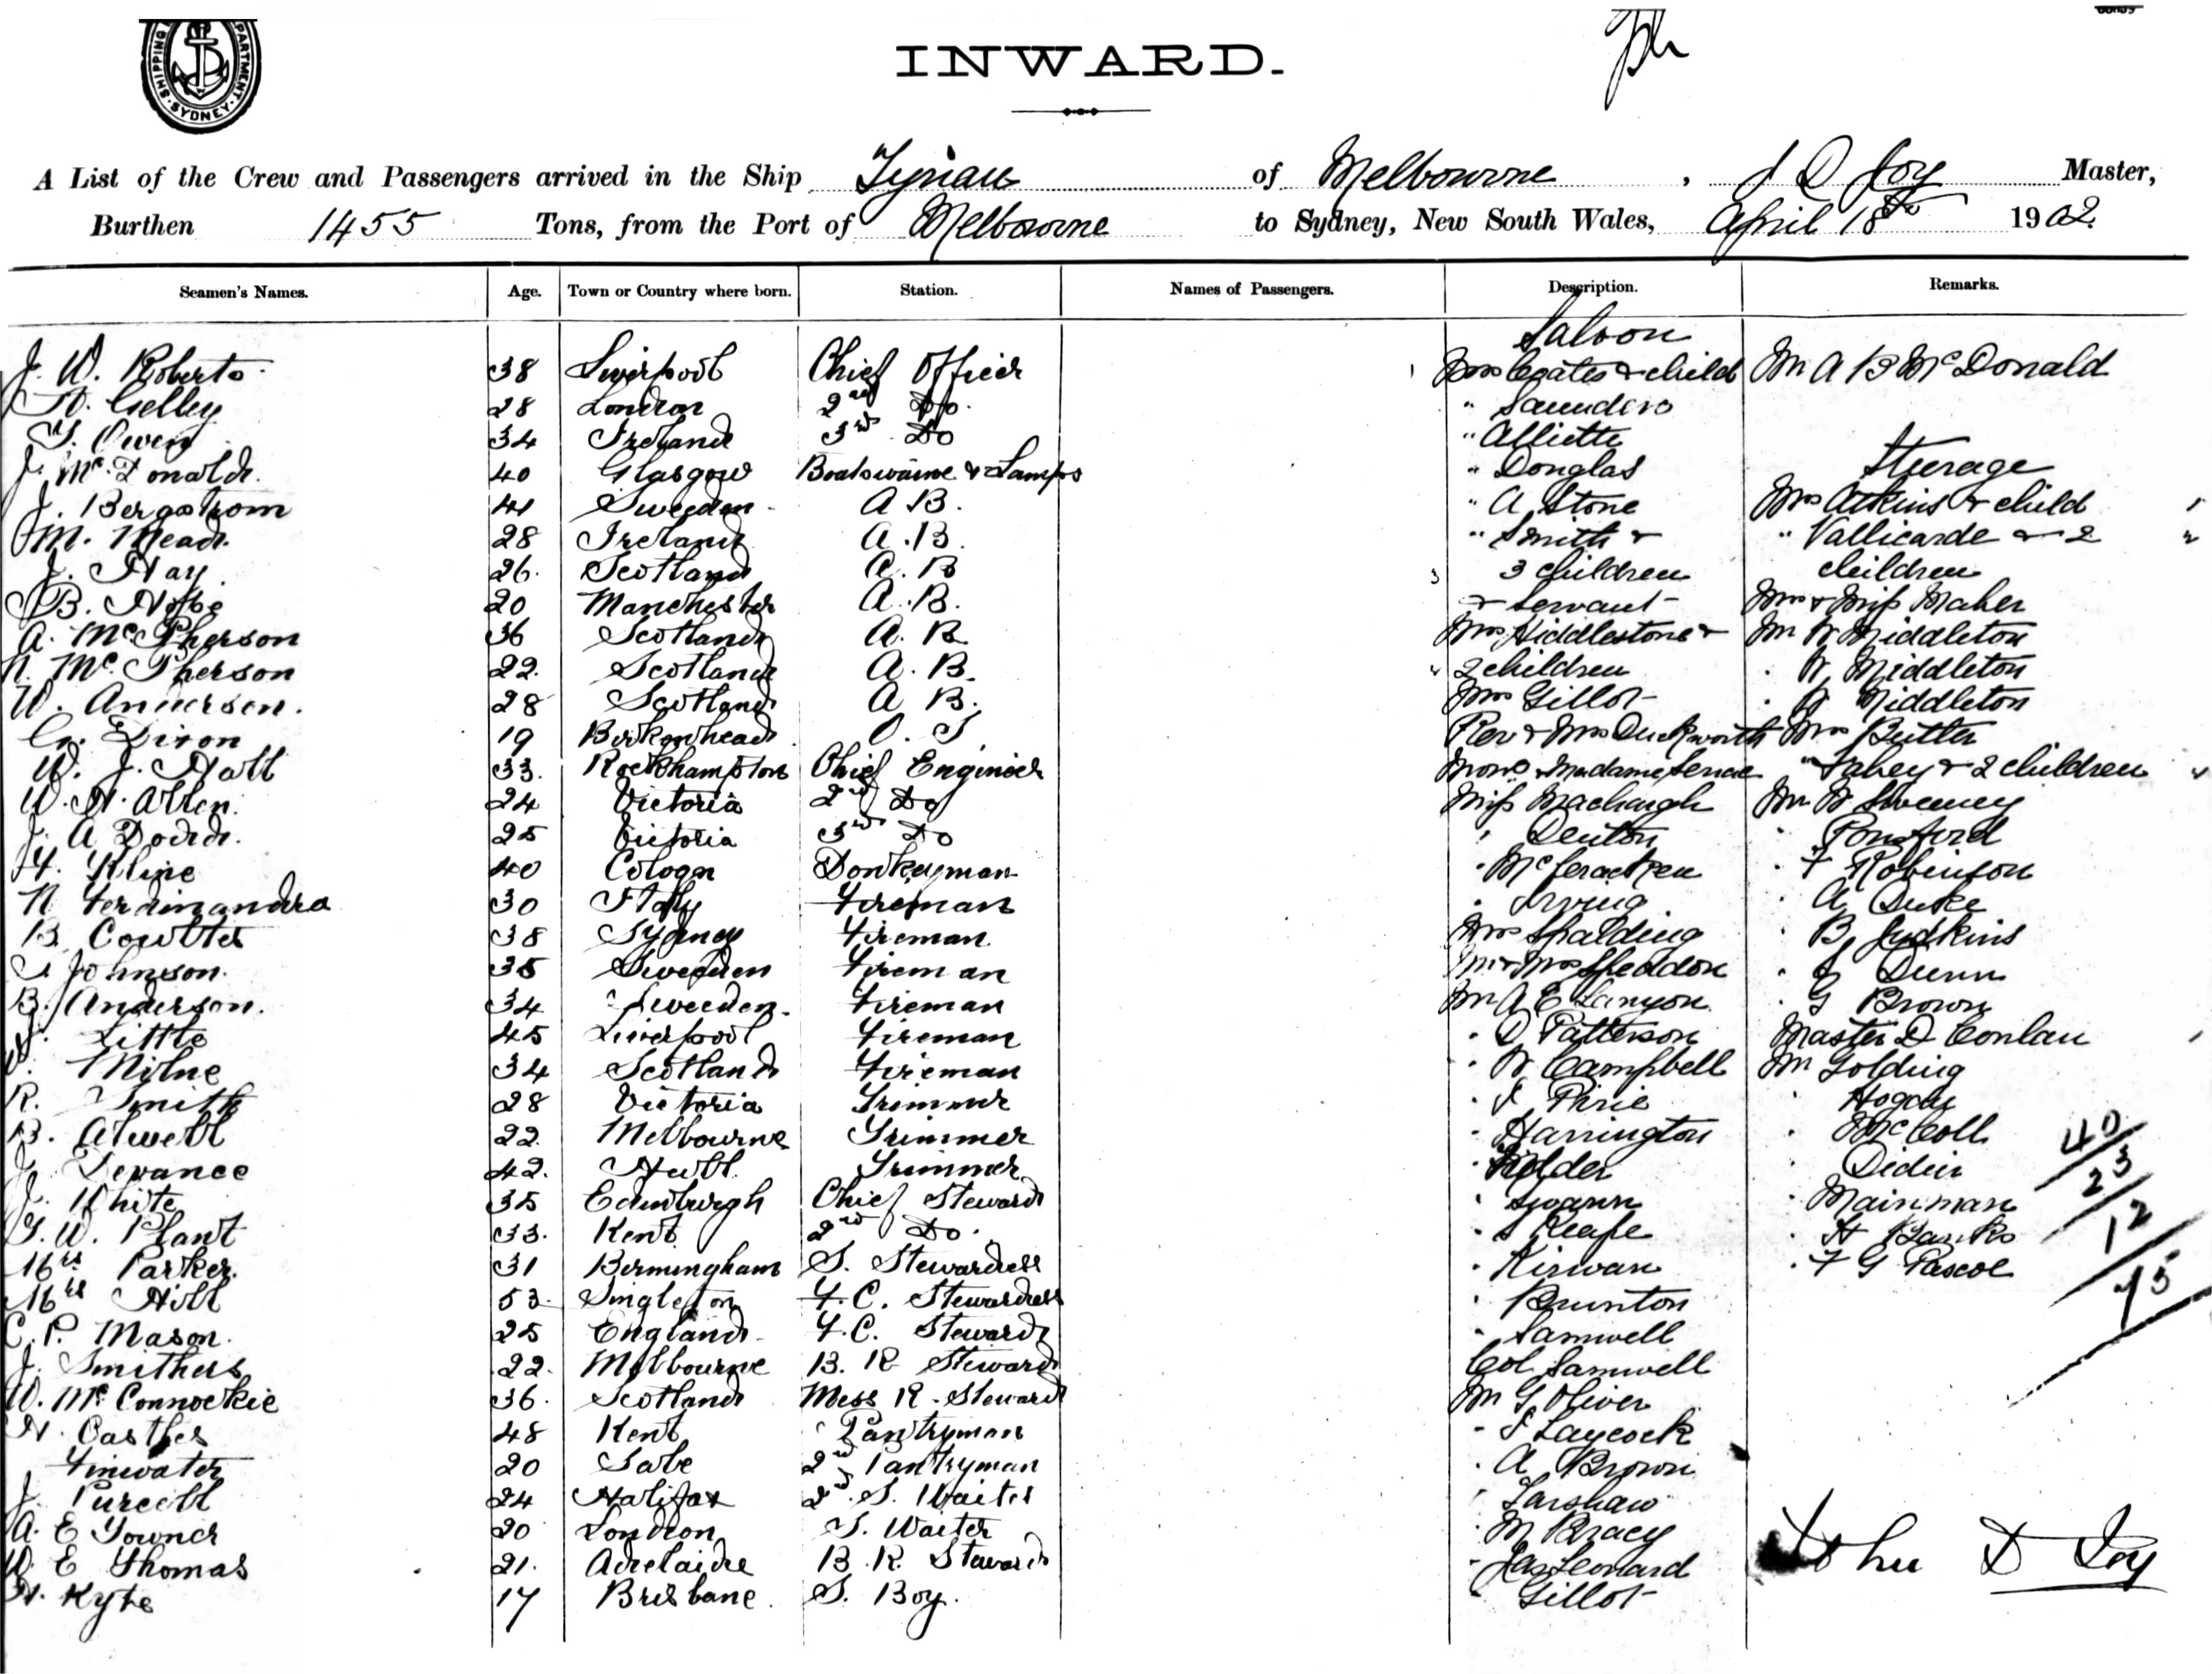 SHIPPING DEPARTMENT. SYDNEY.
INWARD.
A List of the Crew and Passengers arrived in the Ship Tyrian of Melbourne, J D Joy Master,
Burthen 1455 Tons, from the Port of Melbourne to Sydney, New South Wales, April 18th 1902.
Seamen's Names. Age. Town or Country where born. Station. Names of Passengers. Description. Remarks.
Saloon
J. W. Roberts 38 Liverpool Chief Officer Mrs Coates & child Mr A B McDonald
Gelley 28 London 2nd Do. " Saunders
Owen 34 Ireland 3rd Do " Alliette
J. McDonald. 40 Glasgow Boatswaine & Lamps " Douglas Steerage
J. Bergstrom 41 Sweden A B. " A Stone Mrs Atkins & child
M. Mead. 28 Ireland A. B. " Smith & " Vallicarde & 2
J. Hay 26. Scotland A. B 3 children children
B. 20 Manchester A. B. & Servant Mrs & Miss Maher
A. McPherson 36 Scotland A. B. Mrs Hiddlestone & Mr W Middleton
N. McPherson 22. Scotland A. B. 2 children W Middleton
W. Andersen. 28 Scotland A B. Mrs Gillot Middleton
Dixon 19 Birkenhead O. S. Rev & Mrs Duckworth Mrs Butler
W. J. Hall 33. Rockhampton Chief Engineer Madame " Fahey & 2 children
W. H. Allen. 24 Victoria 2nd Do Miss Mr W Sweeney
J. A Dodd. 25 Victoria 3rd Do Denton Ponsford
H. Kline 40 Cologn Donkeyman McCracken F Robinson
N Ferdinandra 30 Italy Fireman Irving A Duke
B. Cowlter 38 Sydney Fireman. Mrs Spalding B Judkins
Johnson. 35 Sweeden Fireman Mr & Mrs Sheddon Dunn
B. Anderson. 34 Sweeden. Fireman Mr A E Lanyon G Brown
Little 45 Liverpool Fireman D Patterson Master D Conlan
Milne 34 Scotland Fireman W Campbell Mr Golding
R. Smith 28 Victoria Trimmer J Pirie Hogan
B. Atwell 22. Melbourne Trimmer Harrington McColl 40
J. Devance 42. Hull. Trimmer Didier 23
J. White 35 Edinburgh Chief Steward Swann Mainman
G. W. Plant 33. Kent 2nd Do. Keafe H Banks 12
Mrs Parker. 31 Birmingham S. Stewardess Kirwan F G Pascoe
Mrs Hill 53. Singleton F. C. Stewardess Brunton 75
C. P. Mason. 25 England F. C. Steward Samwell
J. Smithers 22. Melbourne B. R Steward Col Samwell
W. McConnockie 36. Scotland Mess R. Steward Mr G Oliver
H. Casthes 48 Kent Pantryman Laycock
Finwater 20 Sale 2nd Pantryman A Brown
J. Purcell 24 Halifax 2nd. S. Waiter Larshaw
A. E Towner 20 London S. Waiter M Bracy
W. E Thomas 21. Adelaide B. R. Steward Jas Leonard
H. Kyte 17 Brisbane. S. Boy. Gillot
John D Joy